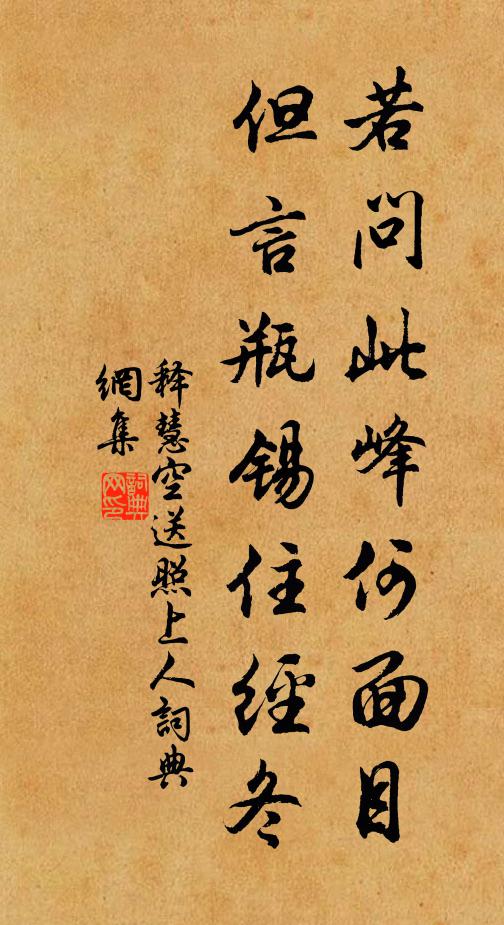 若問此峰何面目
但言瓶錫住經冬
释慧空送照上人詞典
網集
詞典
网印